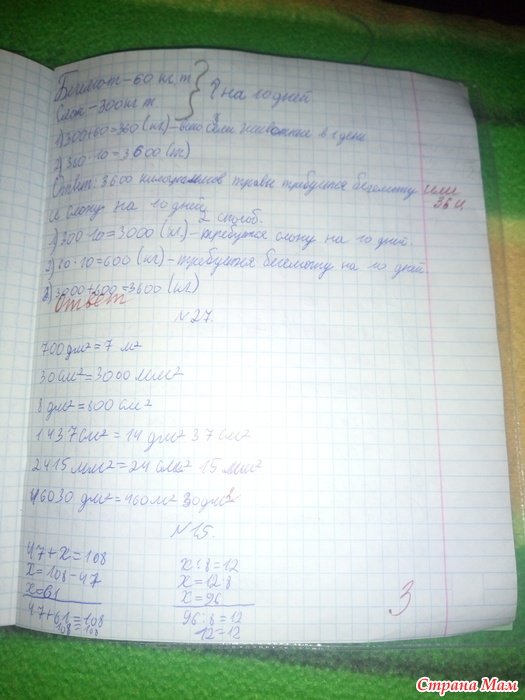 Бегемот – 60 кг т
Слон – 300 кг т. } ? на 10 дней
1) 300+60=360 (кг) – животные в 1 день
2) 360·10=3600 (кг)
Ответ: 3600 килограммов травы требуется бегемоту или
и слону на 10 дней 36 ц
2 способ.
1) 300·10=3000 (кг) – требуется слону на 10 дней.
2) 60·10=600 (кг) – требуется бегемоту на 10 дней.
3) 3000+600=3600 (кг)
Ответ
№27.
700 дм²=7 м²
30 см²=3000 мм²
8 дм²=800 см²
1437 см²=14 дм² 37 см²
2415 мм²=24 см² 15 мм²
46030 дм²=460 м² 30 дм²
№15.
47+x=108
x=108-47
x=61
47+61=108
108=108
x:8=12
x=12·8
x=96
96:8=12
12=12
3
Страна Мам